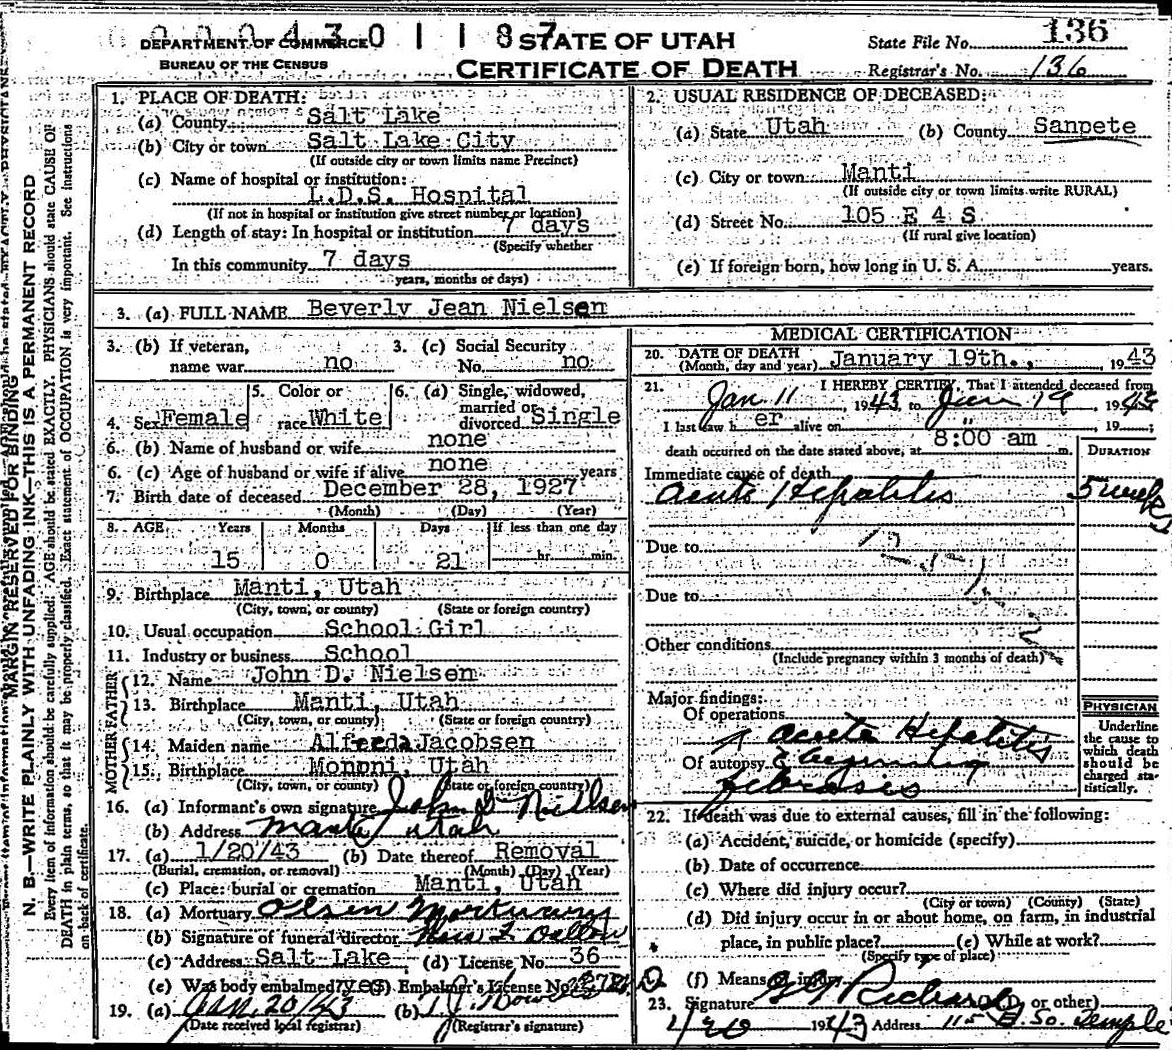 0 0 0 4 3 0 1 1 8 7
DEPARTMENT OF COMMERCE
BUREAU OF THE CENSUS
STATE OF UTAH
CERTIFICATE OF DEATH
State File No. 136
Registrar's No. 136
MARGIN RESERVED FOR BINDING
N. B.—WRITE PLAINLY WITH UNFADING INK—THIS IS A PERMANENT RECORD
Every item of information should be carefully supplied. AGE should be stated EXACTLY. PHYSICIANS should state CAUSE OF
DEATH in plain terms, so that it may be properly classified. Exact statement of OCCUPATION is very important. See instructions
on back of certificate.
1. PLACE OF DEATH:
(a) County Salt Lake
(b) City or town Salt Lake City
(If outside city or town limits name Precinct)
(c) Name of hospital or institution:
L.D.S. Hospital
(If not in hospital or institution give street number or location)
(d) Length of stay: In hospital or institution 7 days
(Specify whether
In this community 7 days
years, months or days)
2. USUAL RESIDENCE OF DECEASED:
(a) State Utah (b) County Sanpete
(c) City or town Manti
(If outside city or town limits write RURAL)
(d) Street No. 105 E 4 S
(If rural give location)
(e) If foreign born, how long in U. S. A. years.
3. (a) FULL NAME Beverly Jean Nielsen
3. (b) If veteran,
name war no
3. (c) Social Security
No. no
4. Sex Female
5. Color or
race White
6. (a) Single, widowed,
married or
divorced Single
6. (b) Name of husband or wife none
6. (c) Age of husband or wife if alive none years
7. Birth date of deceased December 28, 1927
(Month) (Day) (Year)
8. AGE Years Months Days If less than one day
15 0 21 hr. min.
9. Birthplace Manti, Utah
(City, town, or county) (State or foreign country)
10. Usual occupation School Girl
11. Industry or business School
FATHER
12. Name John D. Nielsen
13. Birthplace Manti, Utah
(City, town, or county) (State or foreign country)
MOTHER
14. Maiden name Alfreda Jacobsen
15. Birthplace Moroni, Utah
(City, town, or county) (State or foreign country)
16. (a) Informant's own signature John D Nielsen
(b) Address Manti Utah
17. (a) 1/20/43 (b) Date thereof Removal
(Burial, cremation, or removal) (Month) (Day) (Year)
(c) Place: burial or cremation Manti, Utah
18. (a) Mortuary Olsen Mortuary
(b) Signature of funeral director
(c) Address Salt Lake (d) License No. 36
(e) Was body embalmed? yes Embalmer's License No.
19. (a) Jan. 20/43 (b) T.J. Howells
(Date received local registrar) (Registrar's signature)
MEDICAL CERTIFICATION
20. DATE OF DEATH
(Month, day and year) January 19th., 1943
21. I HEREBY CERTIFY, That I attended deceased from
Jan 11 1943, to Jan 19 1943
I last saw h er alive on " 19 ;
death occurred on the date stated above, at 8:00 am m.
DURATION
Immediate cause of death
Acute Hepatitis 5 weeks
Due to
Due to
Other conditions
(Include pregnancy within 3 months of death)
Major findings:
Of operations
Of autopsy Acute Hepatitis
beginning
fibrosis
PHYSICIAN
Underline
the cause to
which death
should be
charged sta-
tistically.
22. If death was due to external causes, fill in the following:
(a) Accident, suicide, or homicide (specify)
(b) Date of occurrence
(c) Where did injury occur?
(City or town) (County) (State)
(d) Did injury occur in or about home, on farm, in industrial
place, in public place? (e) While at work?
(Specify type of place)
(f) Means of injury
23. Signature G G Richards (M.D. or other)
1/20 1943 Address 115 E. So. Temple